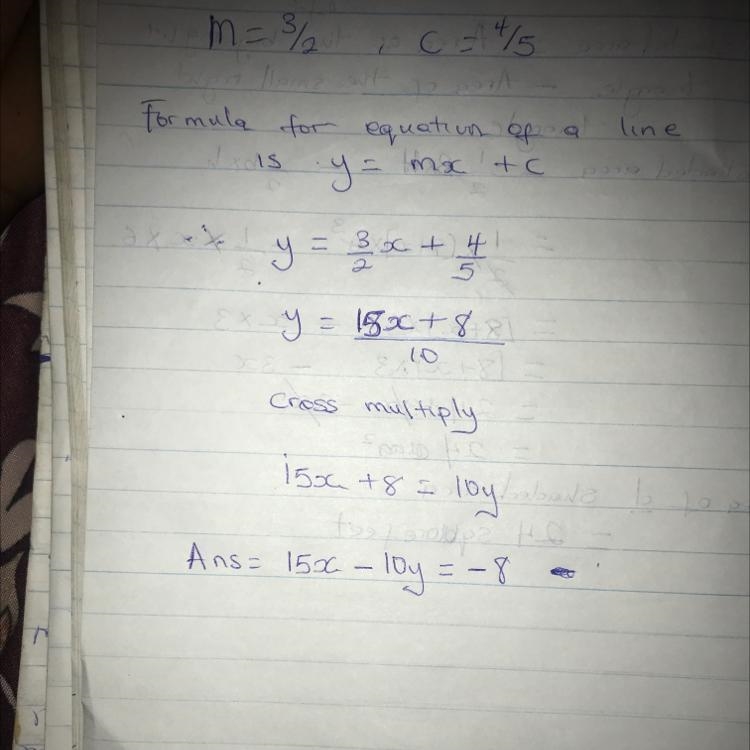 M = 3/2 , C = 4/5
Formula for equation of a line
is y = mx + c
y = 3/2 x + 4/5
y = 15x + 8
10
Cross multiply
15x + 8 = 10y
Ans = 15x - 10y = -8